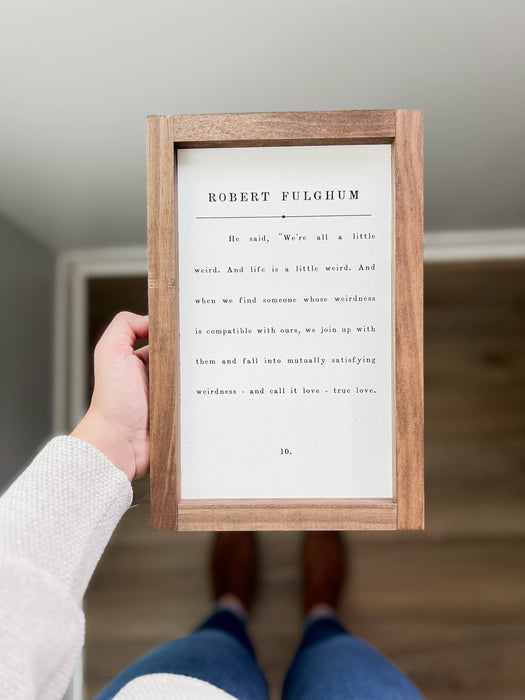 ROBERT FULGHUM
He said, "We're all a little
weird. And life is a little weird. And
when we find someone whose weirdness
is compatible with ours, we join up with
them and fall into mutually satisfying
weirdness - and call it love - true love.
10.